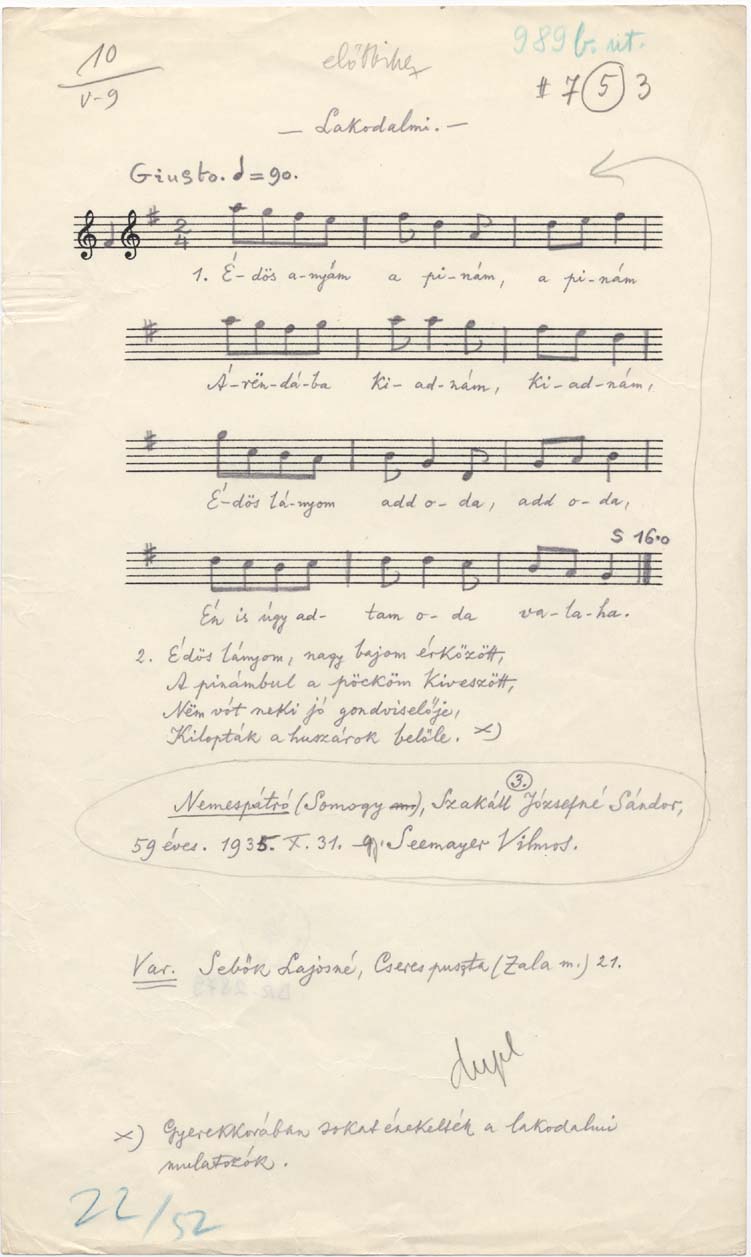 10
V-9
989 b. ut.
előbbihez
# 7 5 3
— Lakodalmi. —
Giusto. = 90.
2
4
1. É-dös a-nyám a pi-nám, a pi-nám
Á-rën-dá-ba ki-ad-nám, ki-ad-nám,
É-dös lá-nyom add o-da, add o-da,
S 16.0
Én is úgy ad-tam o-da va-la-ha.
2. Édös lányom, nagy bajom érközött,
A pinámbul a pöcköm kiveszött,
Nëm vót neki jó gondviselője,
Kilopták a huszárok belőle. x)
3.
Nemespátró (Somogy m.), Szakáll Józsefné Sándor,
59 éves. 1935. X. 31. gy. Seemayer Vilmos.
Var. Sebők Lajosné, Cseres puszta (Zala m.) 21.
dupl
x) Gyerekkorában sokat énekelték a lakodalmi
mulatozók.
22/52